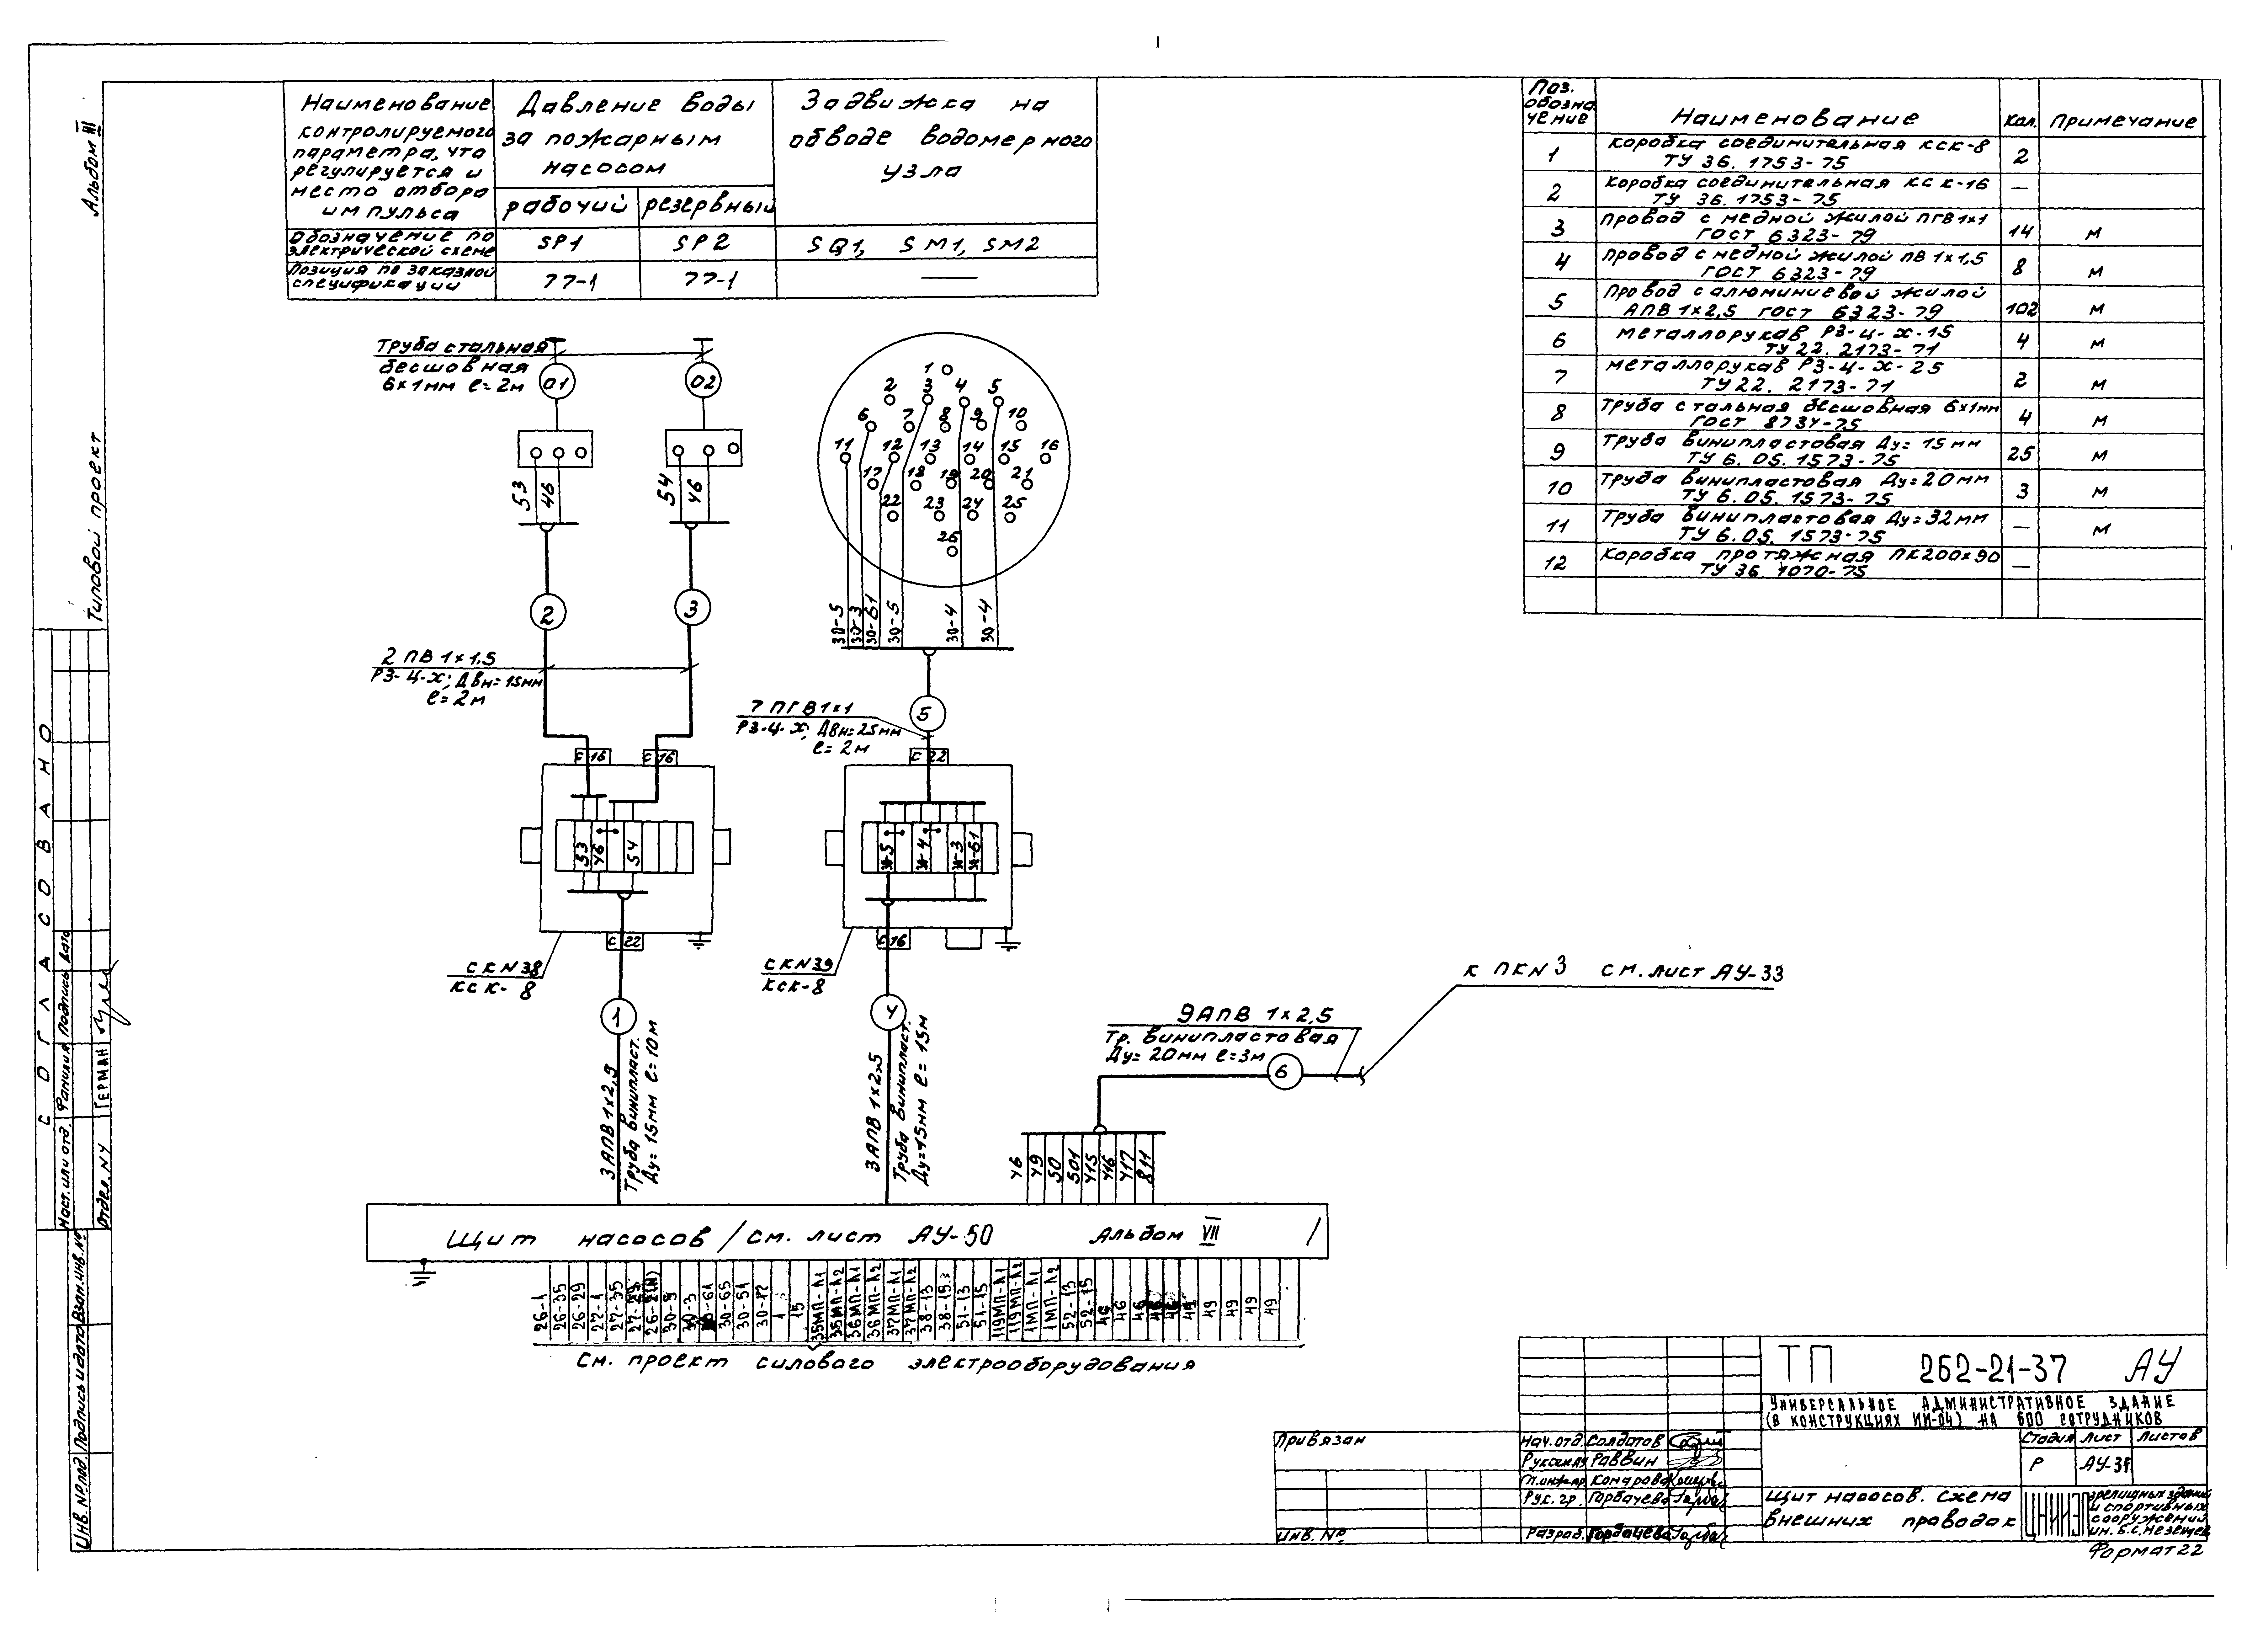 Альбом III
Типовой проект
СОГЛАСОВАНО
Наст. или отд. Фамилия Подпись Дата
Отдел. N4 ГЕРМАН
Инв. № под. Подпись и дата Взам. инв. №
Наименование
контролируемого
параметра, что
регулируется и
место отбора
импульса
Давление воды
за пожарным
насосом
рабочий резервный
Задвижка на
обводе водомерного
узла
Обозначение по
электрической схеме
SP1 SP2 SQ1, SM1, SM2
Позиция по заказной
спецификации
77-1 77-1 —
Поз.
обозна
чение
Наименование Кол. Примечание
1 Коробка соединительная КСК-8
ТУ 36. 1753-75 2
2 Коробка соединительная КСК-16
ТУ 36. 1753-75 —
3 Провод с медной жилой ПГВ 1х1
ГОСТ 6323-79 14 м
4 Провод с медной жилой ПВ 1х1,5
ГОСТ 6323-79 8 м
5 Провод с алюминиевой жилой
АПВ 1х2,5 ГОСТ 6323-79 102 м
6 Металлорукав РЗ-Ц-Х-15
ТУ 22. 2173-71 4 м
7 Металлорукав РЗ-Ц-Х-25
ТУ 22. 2173-71 2 м
8 Труба стальная бесшовная 6х1мм
ГОСТ 8734-75 4 м
9 Труба винипластовая Ду=15мм
ТУ 6.05.1573-75 25 м
10 Труба винипластовая Ду=20мм
ТУ 6.05.1573-75 3 м
11 Труба винипластовая Ду=32мм
ТУ 6.05.1573-75 — м
12 Коробка протяжная ПК200х90
ТУ 36 1070-75 —
Труба стальная
бесшовная
6х1мм ℓ=2м
01 02
53 46 54 46
2 3
2 ПВ 1х1,5
РЗ-Ц-Х; Двн=15мм
ℓ=2м
С 16 С 16
53 46 54
С 22
СКN38
КСК-8
1
3АПВ 1х2,5
Труба винипласт.
Ду=15мм ℓ=10м
1
2 3 4 5
6 7 8 9 10
11 12 13 14 15 16
17 18 19 20 21
22 23 24 25
26
30-5 30-3 30-61 30-5 30-4 30-4
5
7 ПГВ 1х1
РЗ-Ц-Х; Двн=25мм
ℓ=2м
С 22
30-5 30-4 30-3 30-61
С 16
СКN39
КСК-8
4
3АПВ 1х2,5
Труба винипласт.
Ду=15мм ℓ=15м
К ПКN3 см. лист АУ-33
9АПВ 1х2,5
Тр. винипластовая
Ду=20мм ℓ=3м
6
46 49 50 501 415 416 417 811
Щит насосов /см. лист АУ-50 Альбом VII /
26-1 26-35 26-29 27-1 27-35 30-3 30-65 30-51 15 35МП-Л1 35МП-Л2 36МП-Л1 36МП-Л2 37МП-Л1 37МП-Л2 38-13 38-15 51-13 51-15 119МП-Л1 119МП-Л2 1МП-Л1 1МП-Л2 52-13 52-15 46 46 46 46 46 49 49 49 49 49
См. проект силового электрооборудования
ТП 262-21-37 АУ
Универсальное административное здание
(в конструкциях ИИ-04) на 600 сотрудников
Стадия Лист Листов
Р
Привязан
Инв. №
Нач. отд. Солдатов
Раввин
Комарова
Рук. гр. Горбачева
Разраб. Горбачева
Щит насосов. Схема
внешних проводок
ЦНИИЭП
зрелищных зданий
и спортивных
сооружений
им. Б.С. Мезенцев
Формат 22